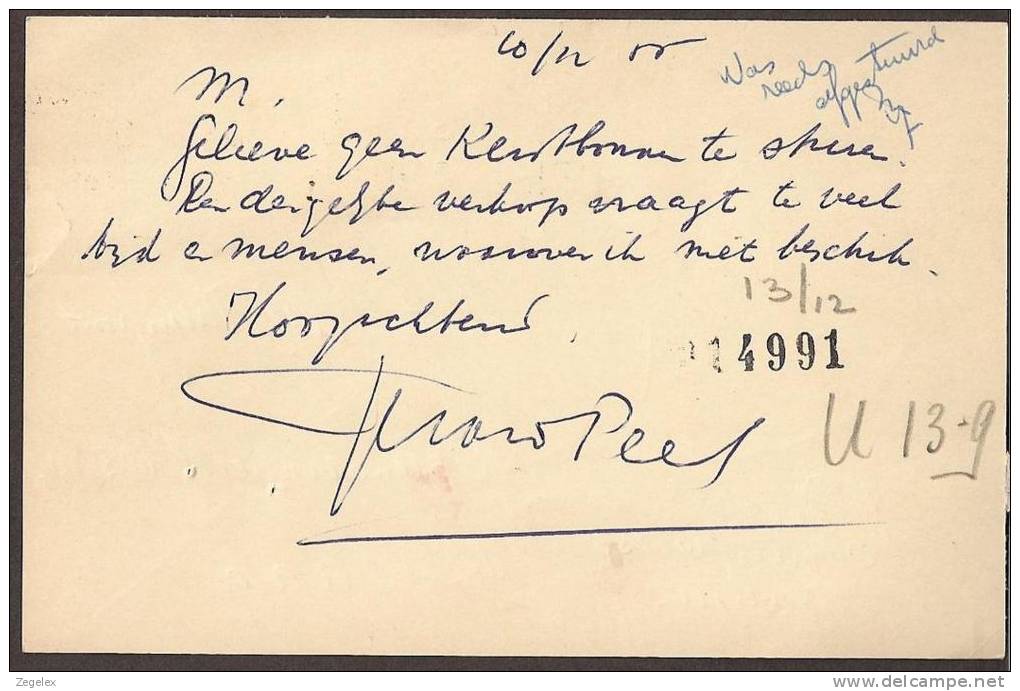 10/12 55
Was
reeds
afgestuurd
M.
Gelieve geen Kerstbonnen te sturen.
Een dergelijke verkoop vraagt te veel
tijd en mensen, waarover ik niet beschik.
Hoogachtend,
13/12
14991
Peel
U 13-9
Zegelex
www.delcampe.net